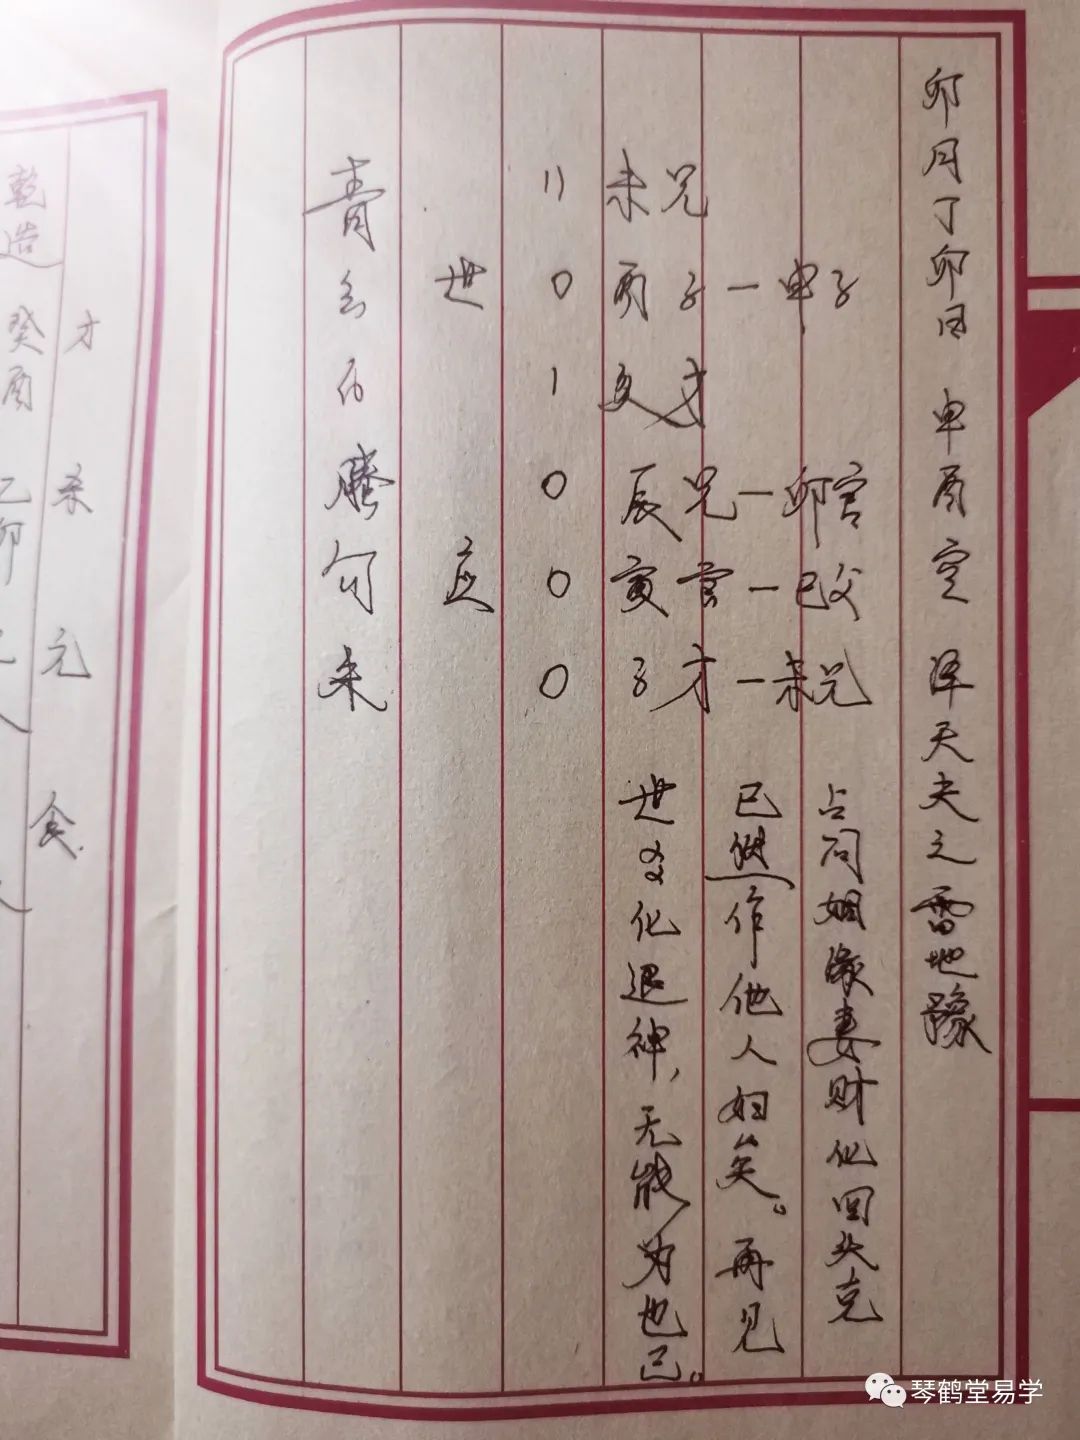 卯月丁卯日 申酉空 泽天夬之雷地豫
青 〃 未兄
玄 世 0 酉子一申子
白 1 亥才
腾 0 辰兄一卯官
勾 应 0 寅官一巳父
朱 0 子才一未兄
占问姻缘妻财化回头克
已然作他人妇矣。再见
世爻化退神，无能为也已。
才
杀
元
食
乾造 癸酉 乙卯
琴鹤堂易学